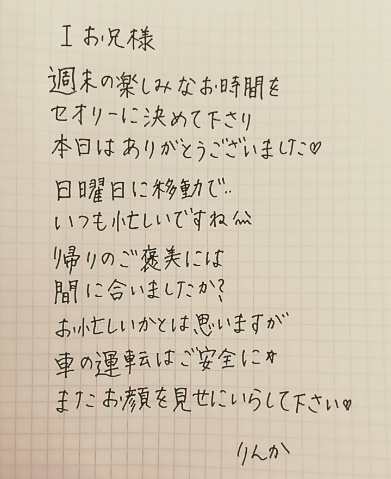 I お兄様
週末の楽しみなお時間を
セオリーに決めて下さり
本日はありがとうございました♡
日曜日に移動で‥
いつも忙しいですね^^;
帰りのご褒美には
間に合いましたか?
お忙しいかとは思いますが
車の運転はご安全に☆
またお顔を見せにいらして下さい♡
りんか